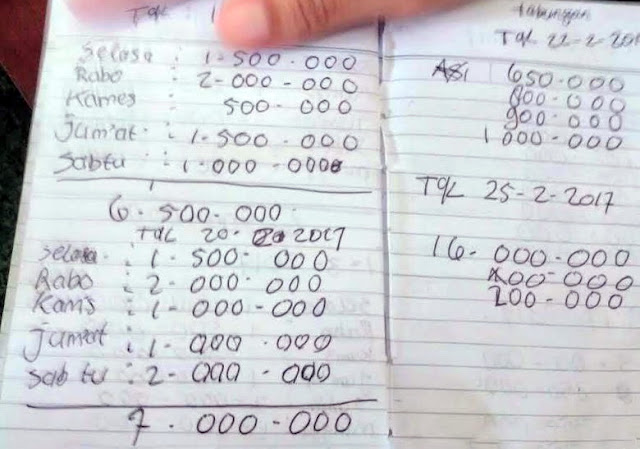 Tgl : 1
Selasa : 1-500.000
Rabo : 2-000-000
Kames 500.000
Jum'at : 1-500.000
Sabtu : 1-000-000
6.500-000.
Tgl 20- 2017
Selasa : 1-500-000
Rabo : 2-000.000
Kams : 1-000-000
Jum'at : 1-000.000
Sabtu : 2-000.000
7.000-000
Tabungan
Tgl 22-2-201
650-000
800-000
900-000
1000-000
Tgl 25-2-2017
16-000-000
400-000
200-000